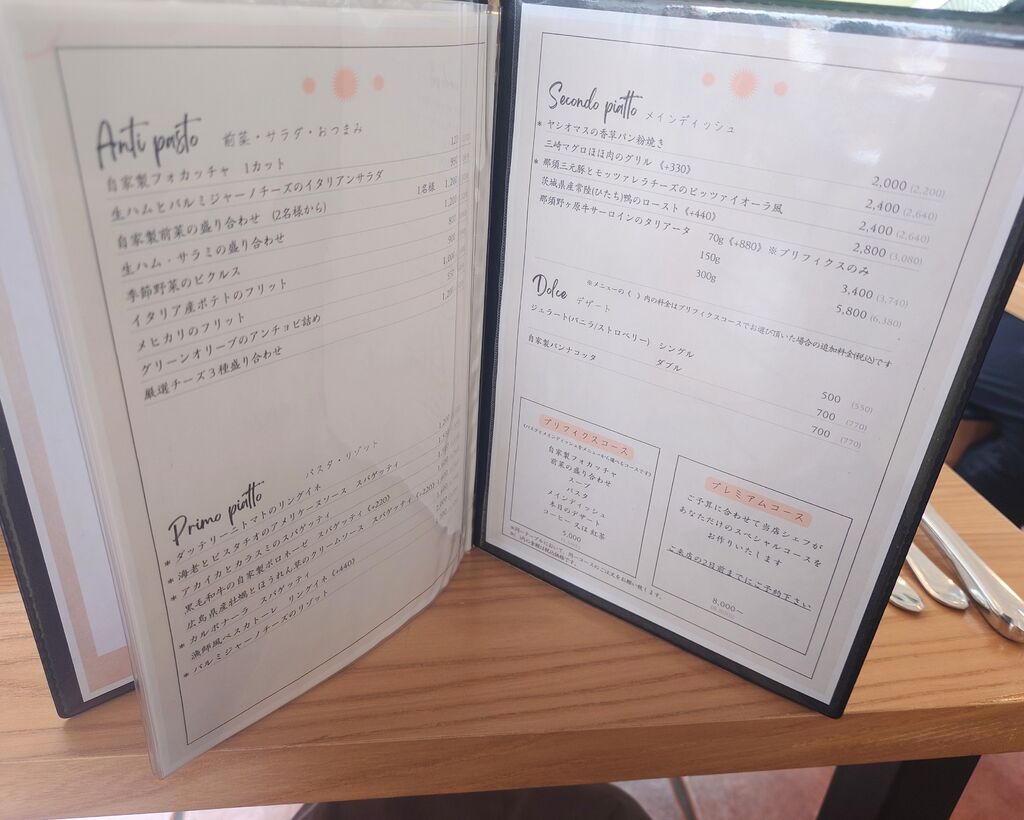 Anti pasto 前菜・サラダ・おつまみ
自家製フォカッチャ 1カット
生ハムとパルミジャーノチーズのイタリアンサラダ
自家製前菜の盛り合わせ (2名様から) 1名様 1,200
生ハム・サラミの盛り合わせ
季節野菜のピクルス
イタリア産ポテトのフリット
メヒカリのフリット
グリーンオリーブのアンチョビ詰め
厳選チーズ3種盛り合わせ
Primo piatto パスタ・リゾット
* ダッテリーニトマトのリングイネ
* 海老とピスタチオのアメリケーヌソース スパゲッティ
* アカイカとカラスミのスパゲッティ
黒毛和牛の自家製ボロネーゼ スパゲッティ《+220》
広島県産牡蠣とほうれん草のクリームソース スパゲッティ《+220》
* カルボナーラ スパゲッティ
漁師風ペスカトーレ リングイネ《+440》
* パルミジャーノチーズのリゾット
Secondo piatto メインディッシュ
* ヤシオマスの香草パン粉焼き 2,000 (2,200)
三崎マグロほほ肉のグリル《+330》 2,400 (2,640)
* 那須三元豚とモッツァレラチーズのピッツァイオーラ風 2,400 (2,640)
茨城県産常陸(ひたち)鴨のロースト《+440》 2,800 (3,080)
那須野ヶ原牛サーロインのタリアータ 70g《+880》※プリフィクスのみ
150g 3,400 (3,740)
300g 5,800 (6,380)
※メニューの《 》内の料金はプリフィクスコースでお選び頂いた場合の追加料金(税込)です
Dolce デザート
ジェラート(バニラ/ストロベリー) シングル 500 (550)
ダブル 700 (770)
自家製パンナコッタ 700 (770)
プリフィクスコース
(パスタとメインディッシュをメニューから選べるコースです)
自家製フォカッチャ
前菜の盛り合わせ
スープ
パスタ
メインディッシュ
本日のデザート
コーヒー 又は 紅茶
5,000
プレミアムコース
ご予算に合わせて当店シェフが
あなただけのスペシャルコースを
お作りいたします
ご来店の2日前までにご予約下さい
8,000〜